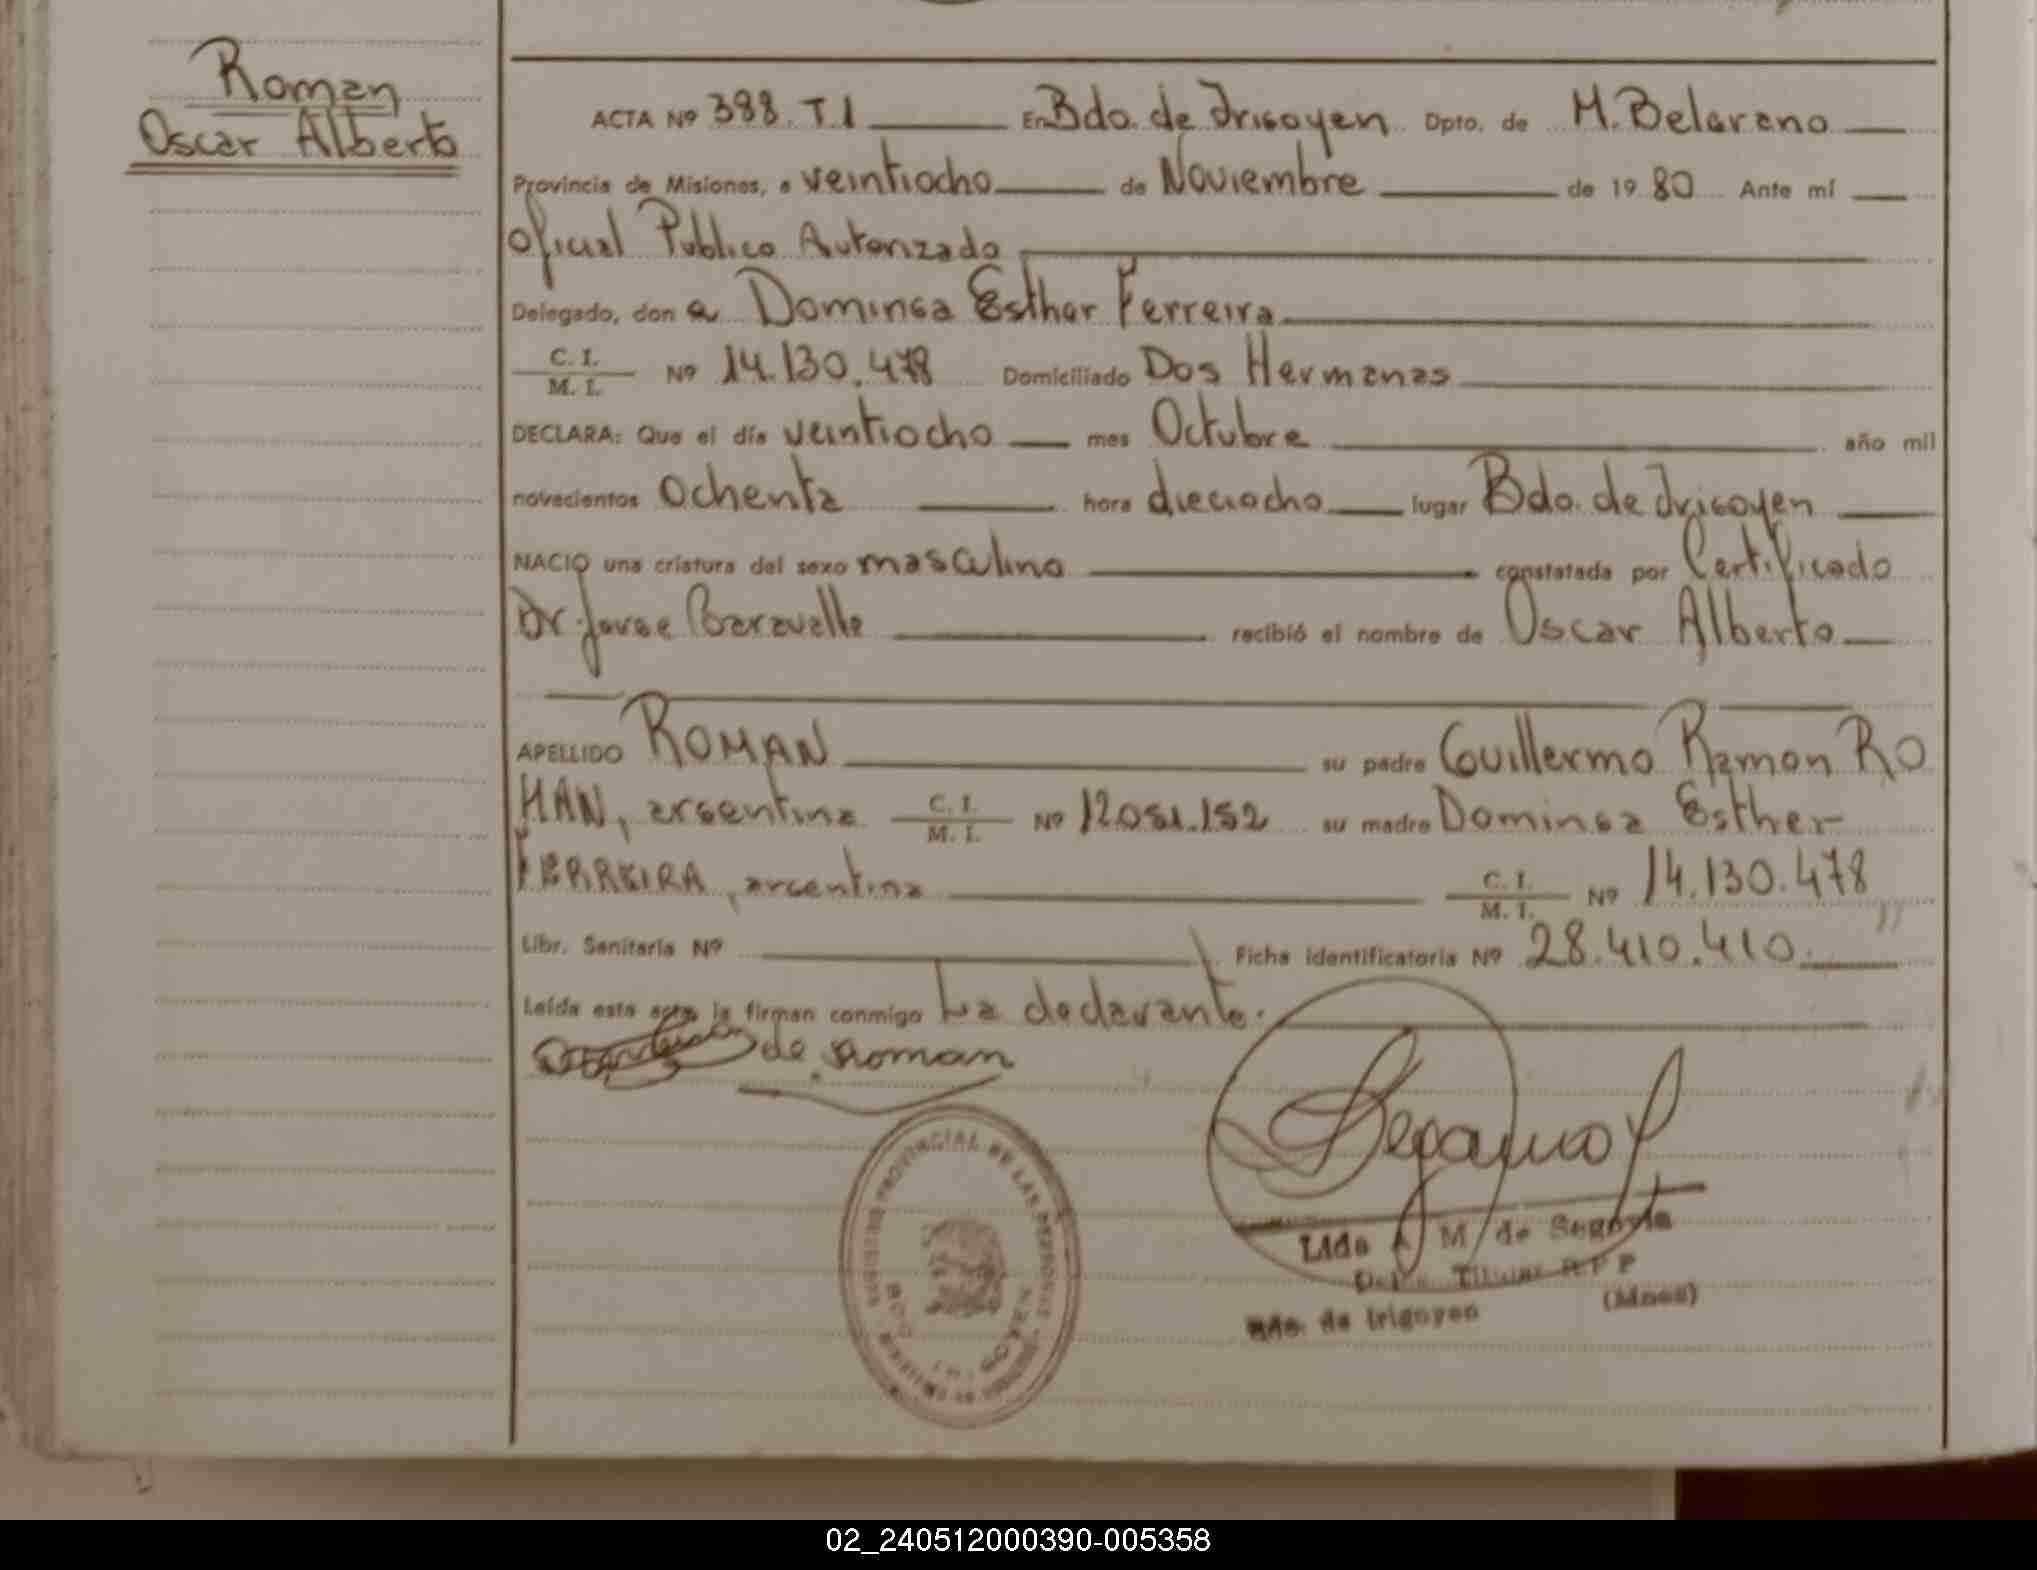 Roman
Oscar Alberto
ACTA Nº 388. T.I En Bdo. de Irigoyen Dpto. de M. Belgrano
Provincia de Misiones, a veintiocho de Noviembre de 1980 Ante mí
Oficial Publico Autorizado
Delegado, don a Dominga Esther Ferreira
C. I.
M. I. Nº 14.130.478 Domiciliado Dos Hermanas
DECLARA: Que el día veintiocho mes Octubre año mil
novecientos Ochenta hora dieciocho lugar Bdo. de Irigoyen
NACIO una criatura del sexo masculino constatada por Certificado
Dr. Jorge Baravalle recibió el nombre de Oscar Alberto
APELLIDO ROMAN su padre Guillermo Ramon RO
MAN, argentina C. I. M. I. Nº 12.051.152 su madre Dominga Esther
FERREIRA, argentina C. I. M. I. Nº 14.130.478
Libr. Sanitaria Nº Ficha identificatoria Nº 28.410.410.
Leída esta acta la firman conmigo La declarante.
de Roman
PROVINCIAL DE LAS PERSONAS
M. de Segovia
Titular R P P
Bdo. de Irigoyen (Mnes)
02_240512000390-005358